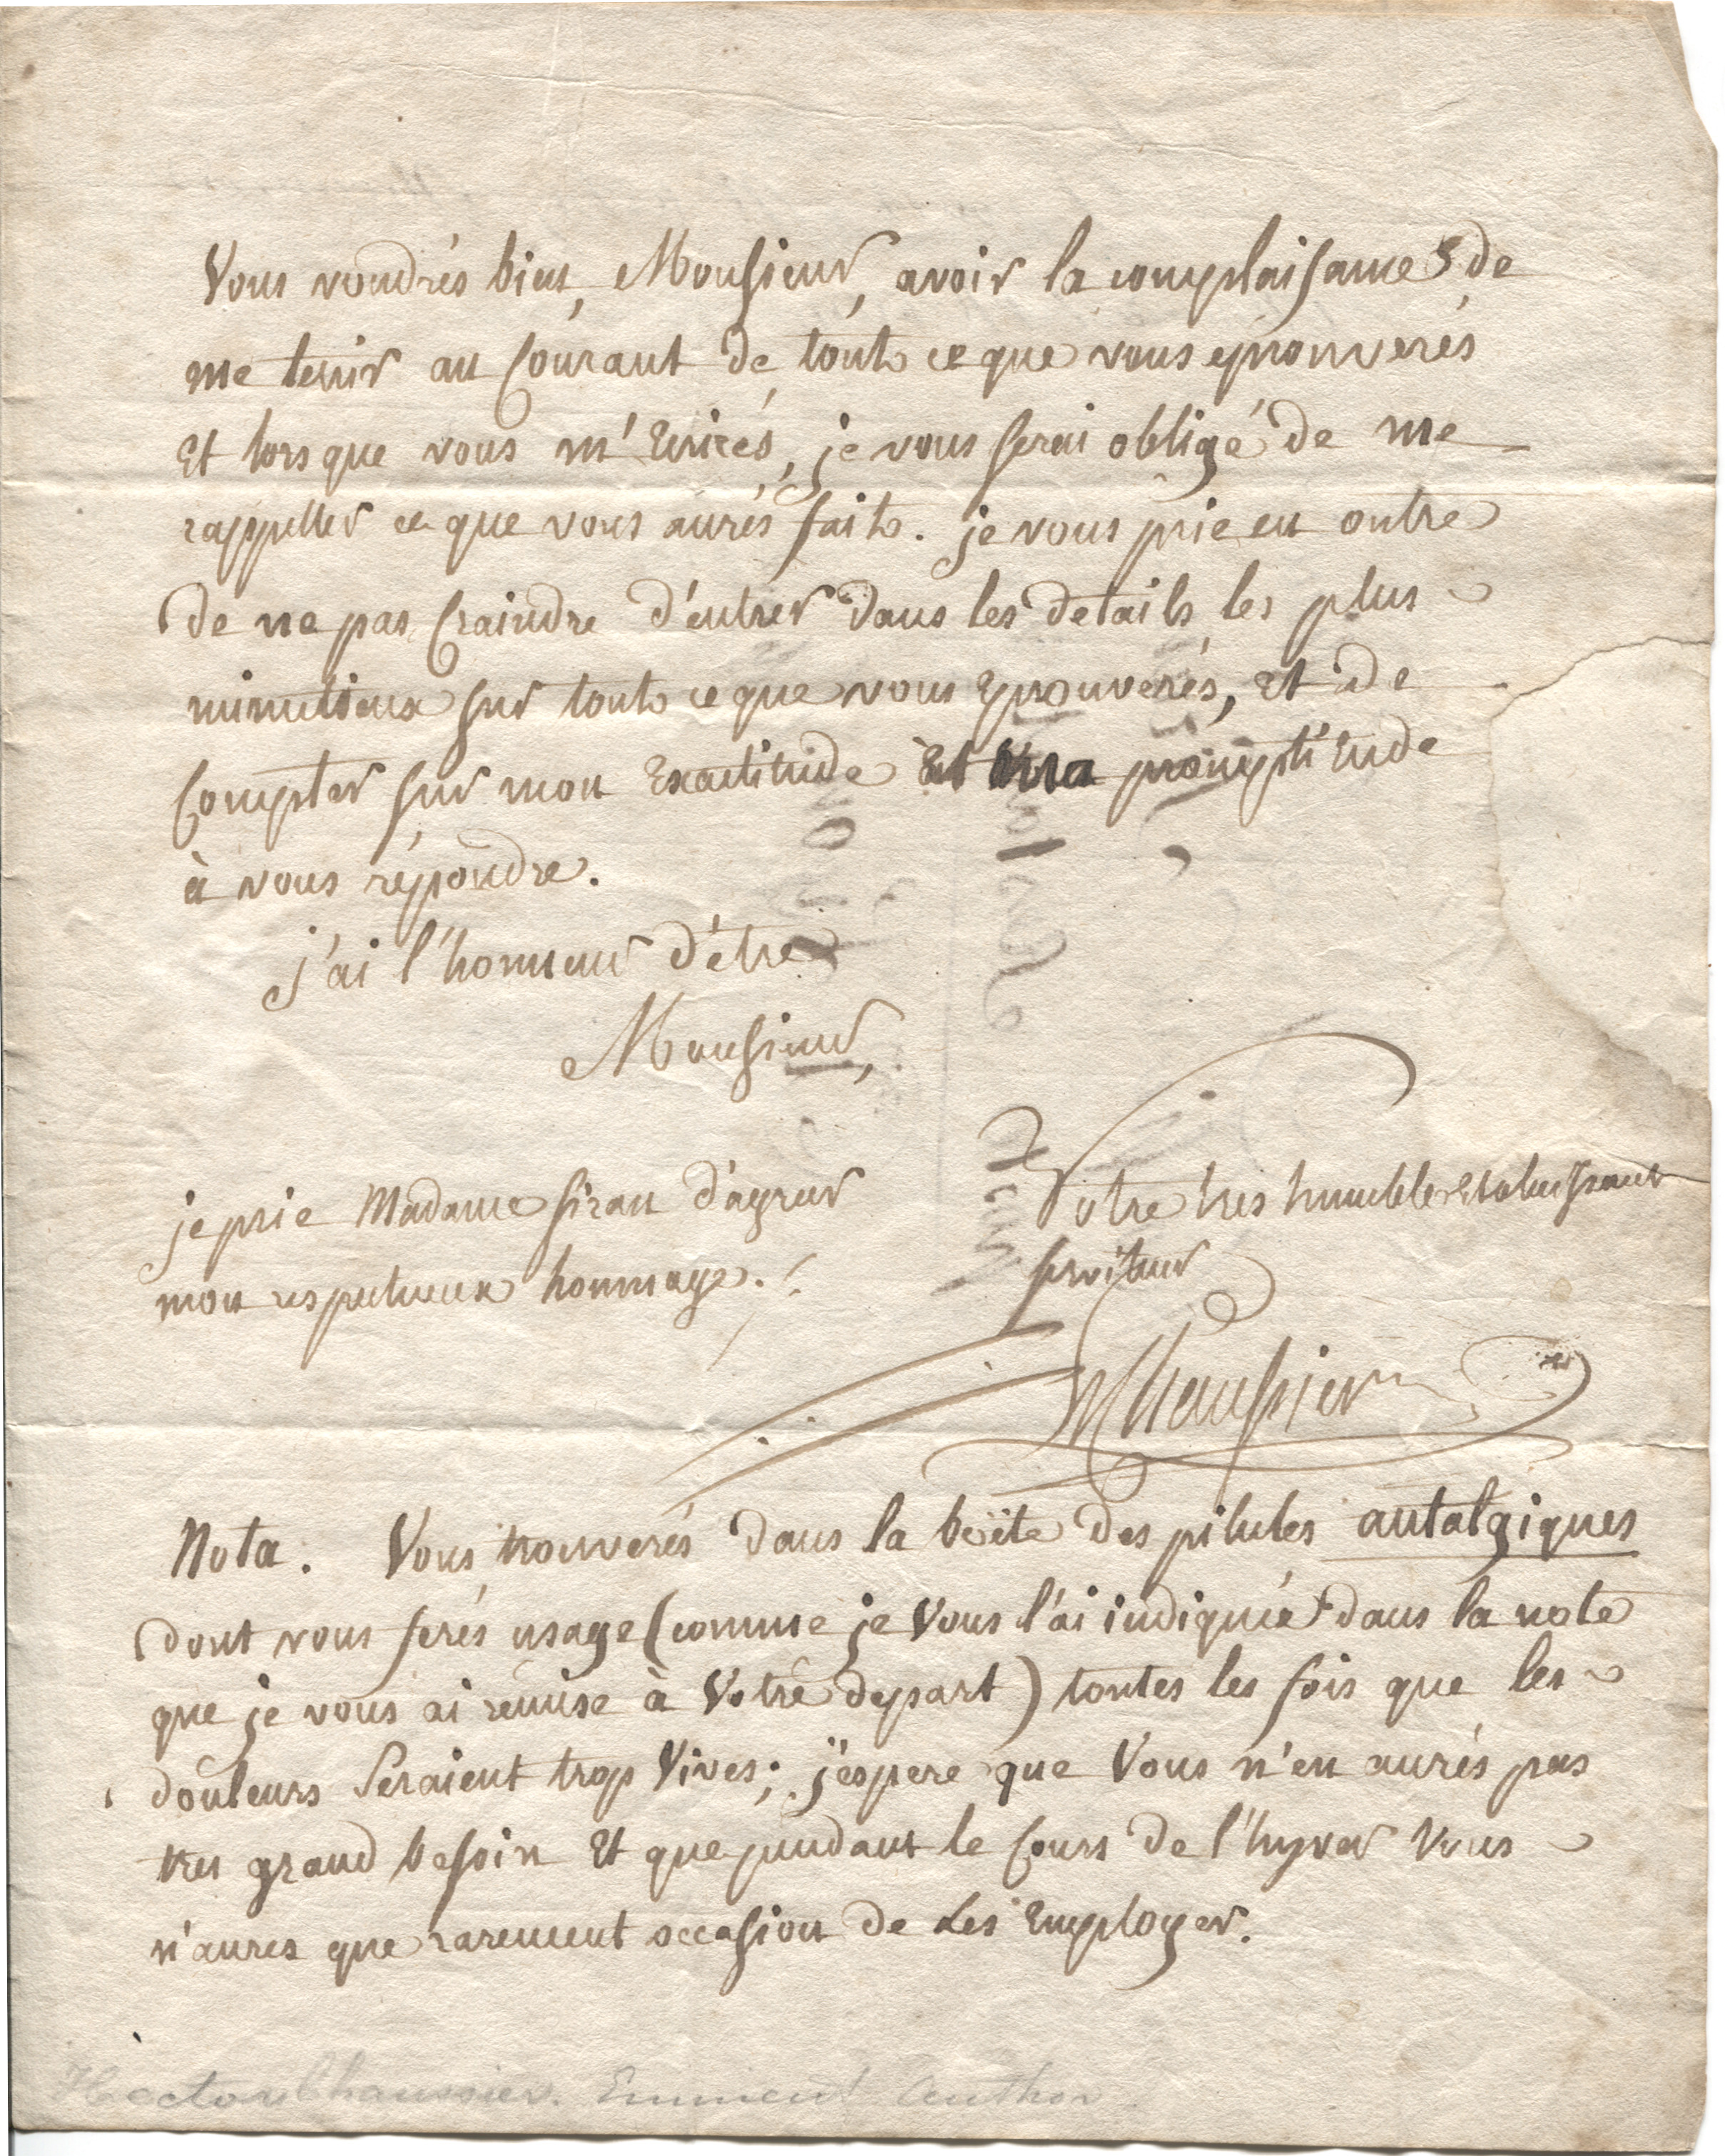 Vous voudrés bien, Monsieur, avoir la complaisance de
me tenir au courant de tout ce que vous eprouverés
et lorsque vous m'Ecrirés, je vous serai obligé de me
rappeller ce que vous aurés fait. je vous prie en outre
de ne pas craindre d'entrer dans les details les plus
minutieux sur tout ce que vous Eprouverés, et de
compter sur mon Exactitude et ma promptitude
à vous répondre.
j'ai l'honneur d'être
Monsieur,
Votre très humble et obeissant
serviteur
je prie Madame siran d'agréer
mon respectueux hommage.
hChaussier
Nota. Vous trouverés dans la boëte des pilules antalgiques
dont vous ferés usage (comme je vous l'ai indiqué dans la note
que je vous ai remise à Votre depart) toutes les fois que les
douleurs Seraient trop Vives; j'espere que Vous n'en aurés pas
tres grand besoin Et que pendant le cours de l'hyver Vous
n'aures que rarement occasion de Les Employer.
Hector Chaussier. Eminent Author